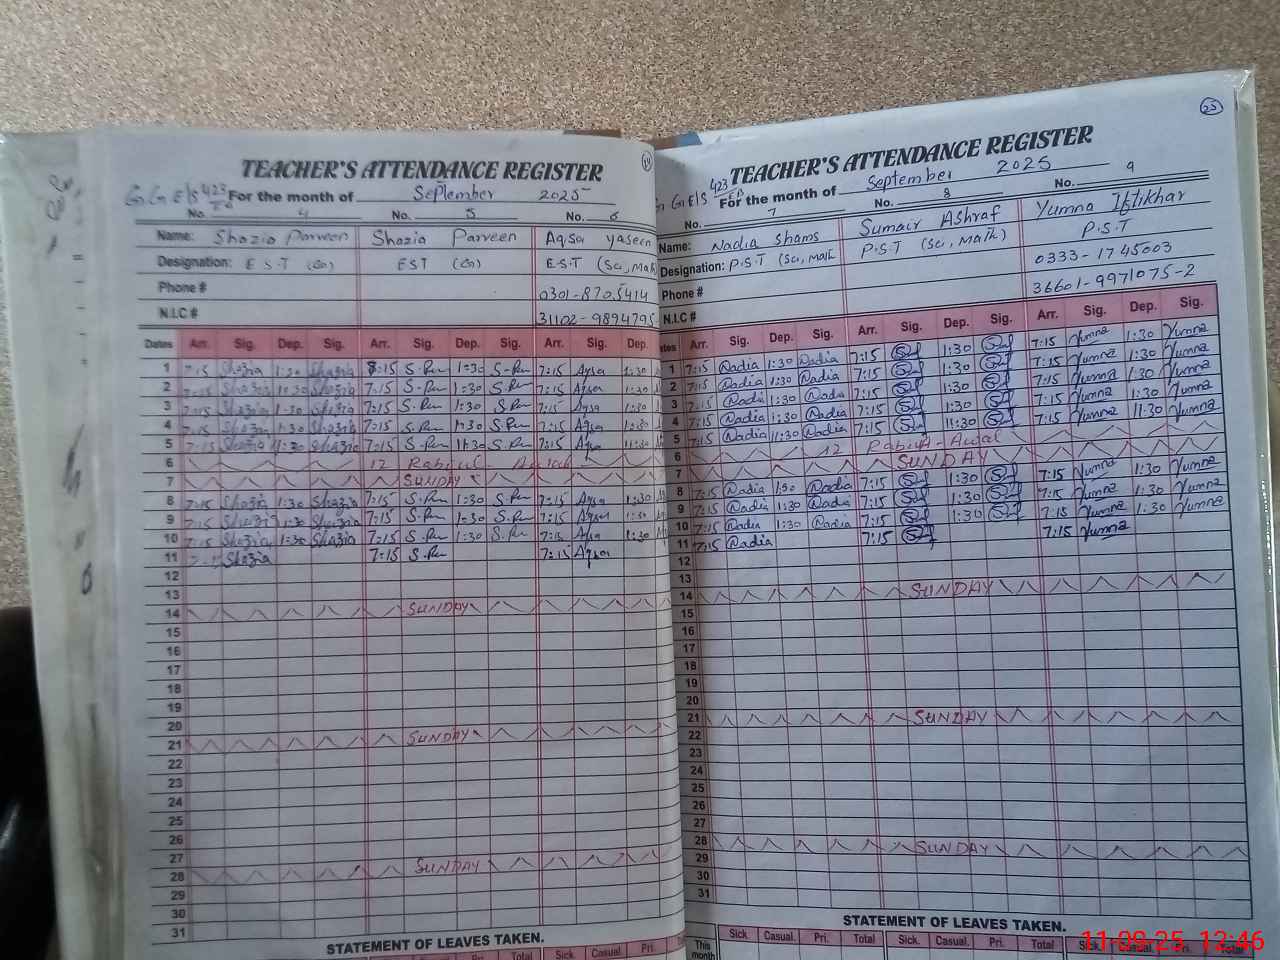 24
TEACHER'S ATTENDANCE REGISTER
G.G.E/S 423/EB For the month of September 2025
No. 4 No. 5 No. 6
Name: Shazia Parveen Shazia Parveen Aqsa Yaseen
Designation: E.S.T (G) EST (G) E.S.T (Sci, Math
Phone # 0301-8705414
N.I.C # 31102-9894795
Dates Arr. Sig. Dep. Sig. Arr. Sig. Dep. Sig. Arr. Sig. Dep.
1 7:15 Shazia 1:30 Shazia 7:15 S.Pn 1:30 S.Pn 7:15 Aqsa 1:30
2 7:15 Shazia 1:30 Shazia 7:15 S.Pn 1:30 S.Pn 7:15 Aqsa 1:30
3 7:15 Shazia 1:30 Shazia 7:15 S.Pn 1:30 S.Pn 7:15 Aqsa 1:30
4 7:15 Shazia 1:30 Shazia 7:15 S.Pn 1:30 S.Pn 7:15 Aqsa 1:30
5 7:15 Shazia 11:30 Shazia 7:15 S.Pn 11:30 S.Pn 7:15 Aqsa 11:30
6 12 Rabiul
7 SUNDAY
8 7:15 Shazia 1:30 Shazia 7:15 S.Pn 1:30 S.Pn 7:15 Aqsa 1:30
9 7:15 Shazia 1:30 Shazia 7:15 S.Pn 1:30 S.Pn 7:15 Aqsa 1:30
10 7:15 Shazia 1:30 Shazia 7:15 S.Pn 1:30 S.Pn 7:15 Aqsa 1:30
11 7:15 Shazia 7:15 S.Pn 7:15 Aqsa
12
13
14 SUNDAY
15
16
17
18
19
20
21 SUNDAY
22
23
24
25
26
27
28 SUNDAY
29
30
31
STATEMENT OF LEAVES TAKEN.
Sick Casual. Pri.
25
TEACHER'S ATTENDANCE REGISTER
G.G.E/S 423/EB For the month of September 2025
No. 7 8 No. 9
Name: Nadia Shams Sumair Ashraf Yumna Iftikhar
Designation: P.S.T (Sci, Math P.S.T (Sci, Math) P.S.T
Phone # 0333-1745003
N.I.C # 36601-9971075-2
Arr. Sig. Dep. Sig. Arr. Sig. Dep. Sig. Arr. Sig. Dep. Sig.
1 7:15 Nadia 1:30 Nadia 7:15 1:30 7:15 Yumna 1:30 Yumna
2 7:15 Nadia 1:30 Nadia 7:15 1:30 7:15 Yumna 1:30 Yumna
3 7:15 Nadia 1:30 Nadia 7:15 1:30 7:15 Yumna 1:30 Yumna
4 7:15 Nadia 1:30 Nadia 7:15 1:30 7:15 Yumna 1:30 Yumna
5 7:15 Nadia 11:30 Nadia 7:15 11:30 7:15 Yumna 11:30 Yumna
6 12 Rabiul-Awal
7 SUNDAY
8 7:15 Nadia 1:30 Nadia 7:15 1:30 7:15 Yumna 1:30 Yumna
9 7:15 Nadia 1:30 Nadia 7:15 1:30 7:15 Yumna 1:30 Yumna
10 7:15 Nadia 1:30 Nadia 7:15 1:30 7:15 Yumna 1:30 Yumna
11 7:15 Nadia 7:15 7:15 Yumna
12
13
14 SUNDAY
15
16
17
18
19
20
21 SUNDAY
22
23
24
25
26
27
28 SUNDAY
29
30
31
STATEMENT OF LEAVES TAKEN.
This month Sick. Casual. Pri. Total Sick. Casual. Pri. Total Sick. Casual. Pri. Total
11-09-25 12:46